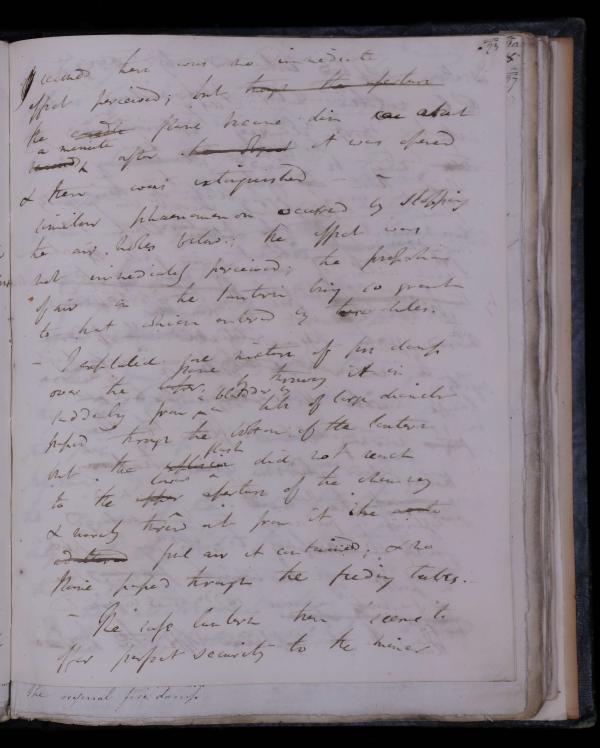 seemed there was no immediate
effect perceived; but through the aperture
the candle flame became dim about
a minute
after it was opened
& then was extinguished —
similar phaenomenon occurred by stopping
the air holes below; the effect was
not immediately perceived; the proportion
of air in the lantern being so great
to that which entered by these holes.
— I exploded some mixture of fire damp
flame
over the by throwing it in
a bladder by
suddenly from a tube of large diameter
passed through the bottom of the lantern
flash
but the explosion did not reach
lower
to the upper aperture of the chimney
& merely threw out from it the
foul air it contained; & no
flame passed through the feeding tubes. —
— The safe lantern then seems to
offer perfect security to the miner
The original fire damp